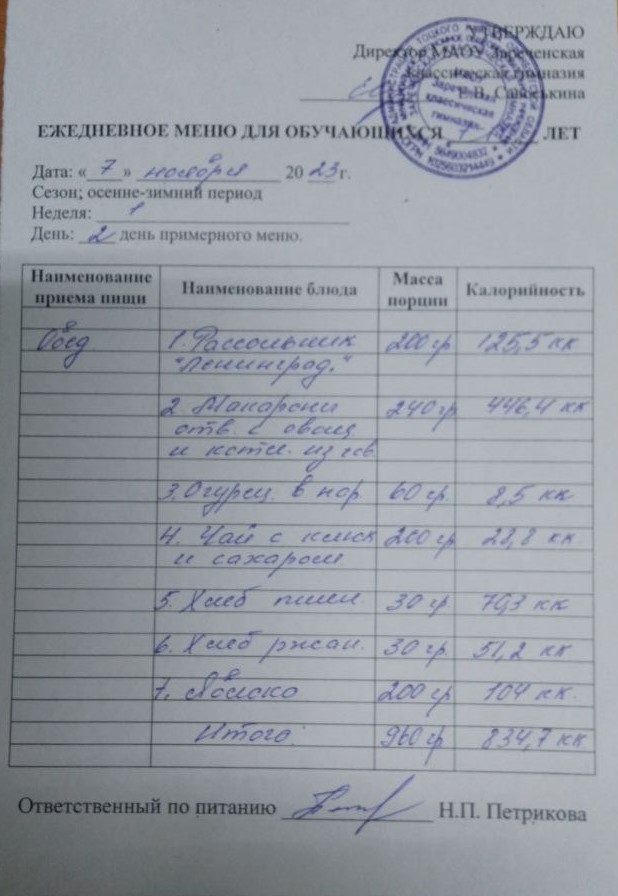 УТВЕРЖДАЮ
Директор МАОУ Зареченская
классическая гимназия
Е.В. Савоськина
Зареченская
классическая
гимназия
ИНН 5649004832
ОГРН 1025603214449
ЕЖЕДНЕВНОЕ МЕНЮ ДЛЯ ОБУЧАЮЩИХСЯ ЛЕТ
Дата: «7» ноября 2023 г.
Сезон; осенне-зимний период
Неделя: 1
День: 2 день примерного меню.
Наименование приема пищи Наименование блюда Масса порции Калорийность
Обед 1. Рассольник 200 гр 125,5 кк
"Ленинград."
2. Макароны 240 гр 446,4 кк
отв. с овощ
и котл. из гов.
3. Огурец. в нар. 60 гр. 8,5 кк
4. Чай с 200 гр 28,8 кк
и сахаром
5. Хлеб пшен. 30 гр 70,3 кк
6. Хлеб ржан. 30 гр 51,2 кк
7. Яблоко 200 гр 104 кк.
Итого: 960 гр 834,7 кк.
Ответственный по питанию Н.П. Петрикова